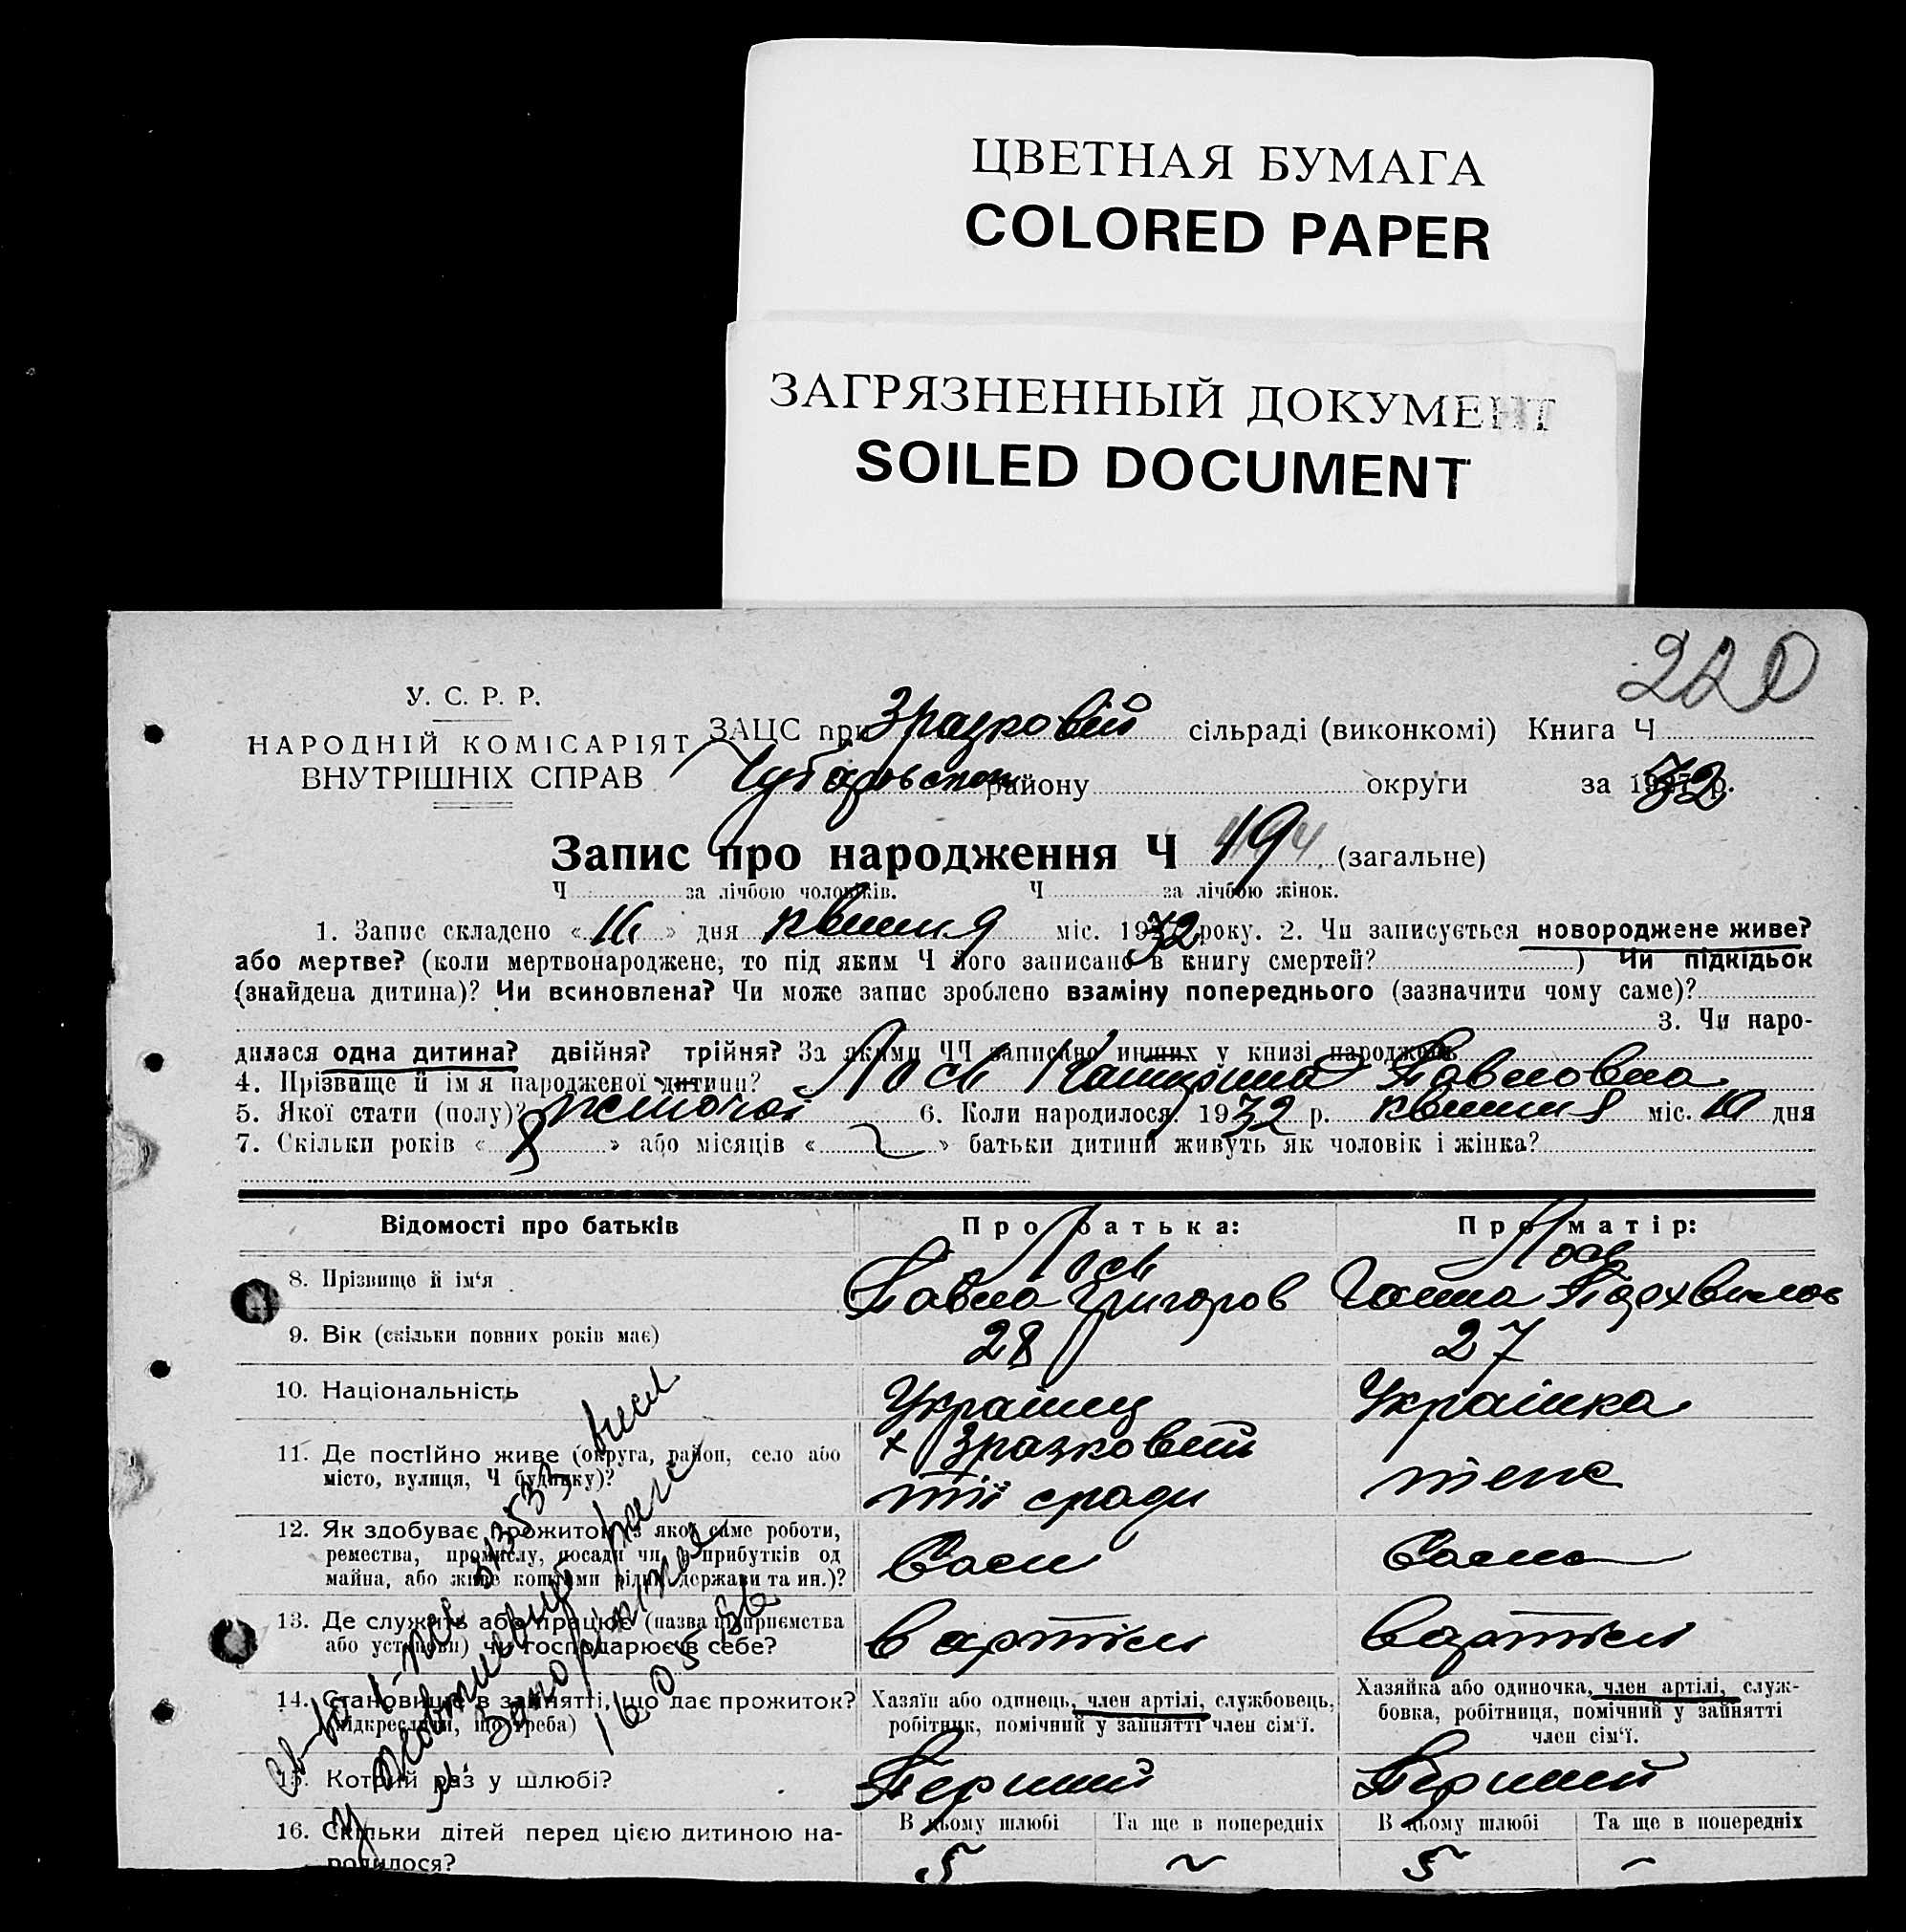 ЦВЕТНАЯ БУМАГА
COLORED PAPER
ЗАГРЯЗНЕННЫЙ ДОКУМЕНТ
SOILED DOCUMENT
220
У. С. Р. Р.
НАРОДНІЙ КОМІСАРІЯТ
ВНУТРІШНІХ СПРАВ
ЗАЦС при Зразковій сільраді (виконкомі) Книга Ч
Чубаровском району округи за 1932 р.
Запис про народження Ч 19 (загальне)
Ч за лічбою чоловіків. Ч за лічбою жінок.
1. Запис складено « 16 » дня квитня міс. 1932 року. 2. Чи записується новороджене живе?
або мертве? (коли мертвонароджене, то під яким Ч його записано в книгу смертей? ) Чи підкідьок
(знайдена дитина)? Чи всиновлена? Чи може запис зроблено взаміну попереднього (зазначити чому саме)?
3. Чи наро-
дилася одна дитина? двійня? трійня? За якими ЧЧ записано инших у книзі народжень
4. Прізвище й ім'я народженої дитини? Лось Павловна
5. Якої стати (полу)? жіночої 6. Коли народилося? 1932 р. квитня міс. 10 дня
7. Скільки років « 8 » або місяців « » батьки дитини живуть як чоловік і жінка?
Відомості про батьків
Про батька:
Про матір:
8. Прізвище й ім'я
Лось
Павло Григоров
Лось
Ганна
9. Вік (скільки повних років має)
28
27
10. Національність
Українец
Українка
11. Де постійно живе (округа, район, село або
місто, вулиця, Ч будинку)?
х Зразковій
тії сради
теж
12. Як здобуває прожиток з якої саме роботи,
ремества, промислу, посади чи з прибутків од
майна, або живе коштами рідні, держави та ин.)?
13. Де служить або працює (назва підприємства
або установи) чи господарює в себе?
вартіли
вартіли
14. Становище в занятті, що дає прожиток?
(підкреслити, що треба)
Хазяїн або одинець, член артілі, службовець,
робітник, помічний у занятті член сім'ї.
Хазяйка або одиночка, член артілі, служ-
бовка, робітниця, помічний у занятті
член сім'ї.
15. Котрий раз у шлюбі?
Перший
Перший
16. Скільки дітей перед цією дитиною на-
родилося?
В цьому шлюбі
Та ще в попередніх
В цьому шлюбі
Та ще в попередніх
5
~
5
–